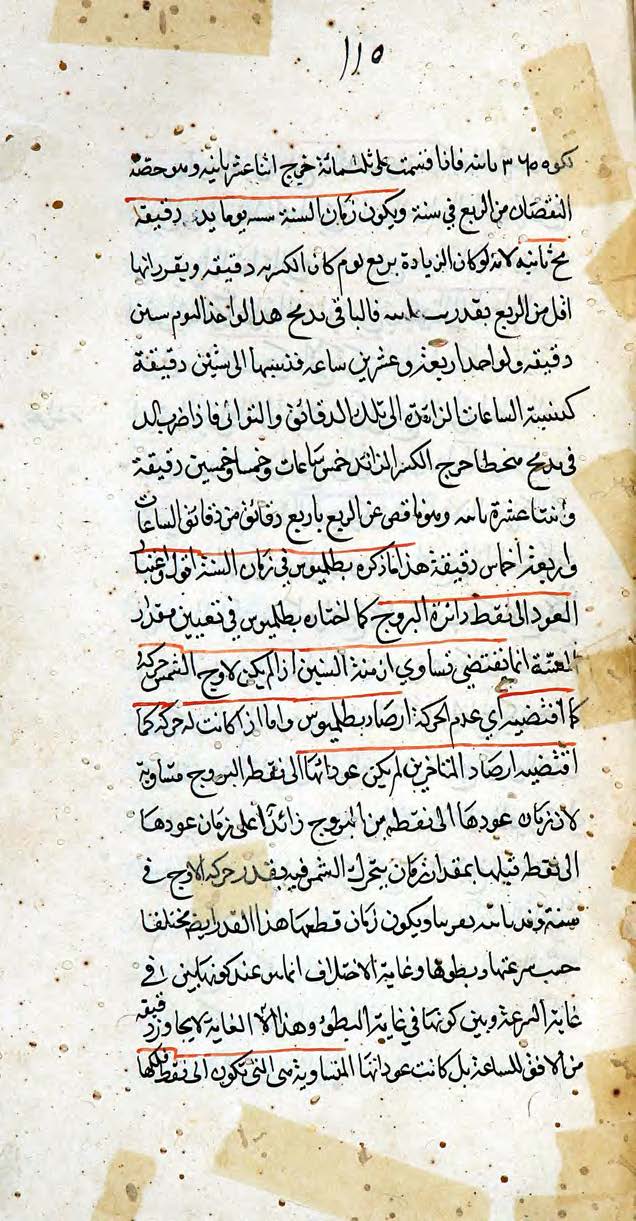 ١١٥
ثانيه فاذا قسمت على ثلثمائة خرج اثنا عشر ثانيه وهو حصة
النقصان من الربع في سنة ويكون زمان السنة سسه يوما يد دقيقه
مح ثانيه لانه لو كان الزيادة بربع يوم كان الكسر يه دقيقه ويقرر انها
اقل من الربع بقدر يب ثانيه فالباقي يد مح هذا الواحد اليوم ستين
دقيقه ولواحد اربعة وعشرين ساعه فنسبها الى ستين دقيقة
كنسبة الساعات الزائدة الى تلك الدقائق والثوانى فاذا ضرب الد
فى يد مح منحطا خرج الكسر الزائد خمس ساعات وخمسا وخمسين دقيقة
واثنتا عشرة ثانيه وهو ناقص عن الربع باربع دقائق من دقائق الساعات
واربعة اخماس دقيقة هذا ما ذكره بطلميوس في زمان السنة اقول واعتبار
العود الى نقط دائرة البروج كما اختاره بطلميوس في تعيين مقدار
السنة انما تقتضى تساوي ازمنة السنين اذا لم يكن لاوج الشمس حركة
كما اقتضيه اي عدم الحركة ارصاد بطلميوس واما اذا كانت له حركة كما
اقتضيه ارصاد المتاخرين لم يكن عوداتها الى نقطة البروج متساوية
لان زمان عودها الى نقطة من البروج زائدا على زمان عودها
الى نقطة قبلها بمقدار زمان يتحرك الشمس فيه بقدر حركة الاوج في
سنة ويكون زمان قطعها هذا القدر ايضا مختلفا
حسب سرعتها وبطوها وغاية الاختلاف انما من عند كونها بين في
غاية السرعة وبين كونها في غاية البطؤ وهذا الغاية لا يجاوز دقيقه
من الافق للساعة بل كانت عوداتها المتساوية هى التى تكون الى نقط فلكها